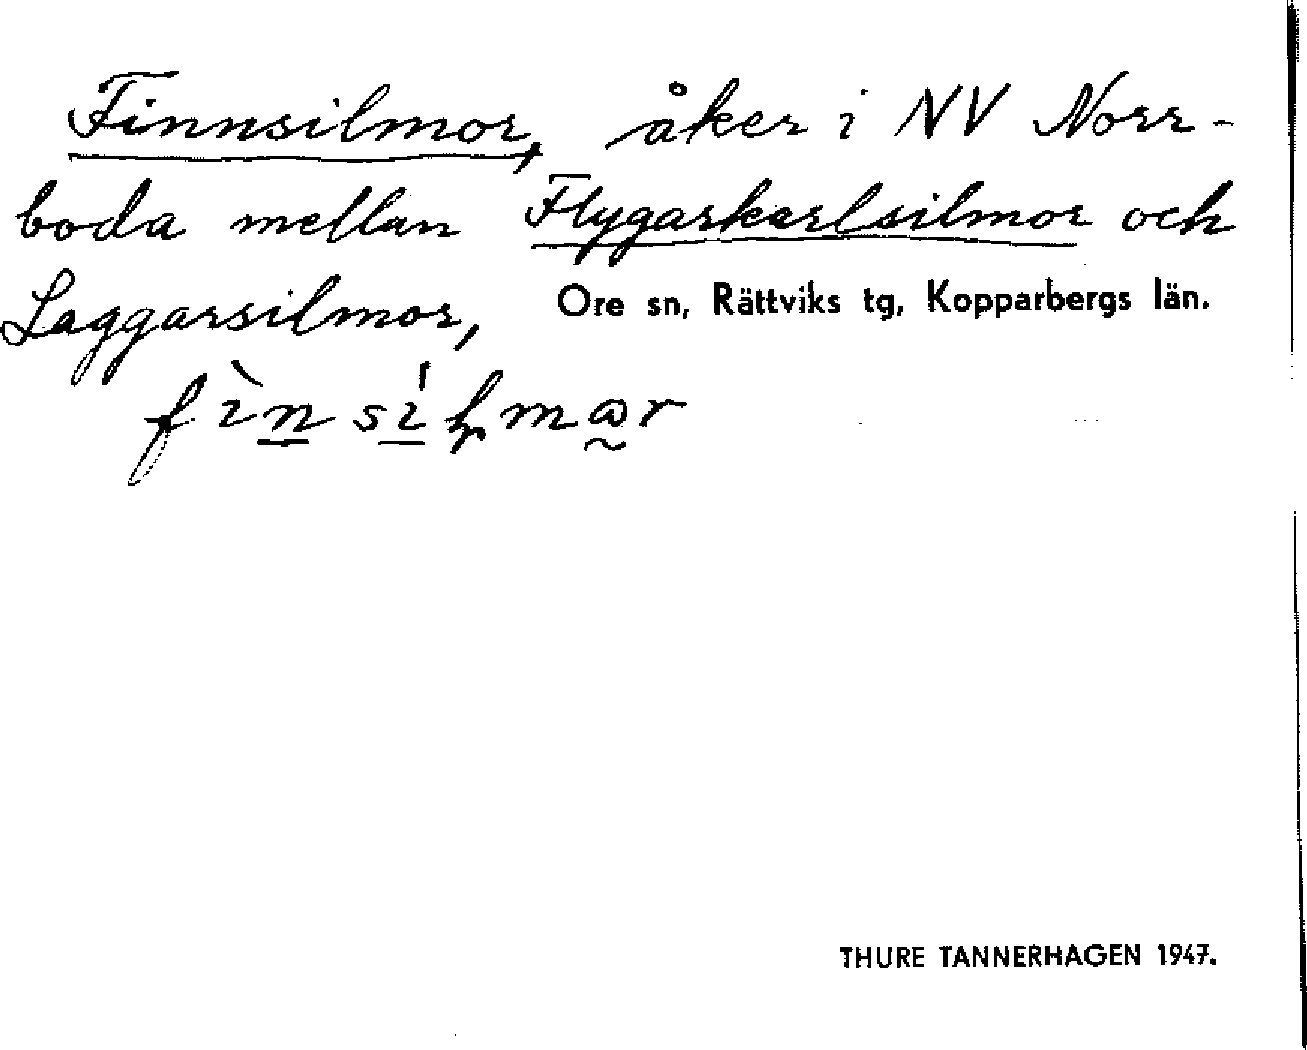 Finnsilmor, åker i NV Norr-
boda mellan Flygarkarlsilmor och
Laggarsilmor,
Ore sn, Rättviks tg, Kopparbergs län.
THURE TANNERHAGEN 1947.